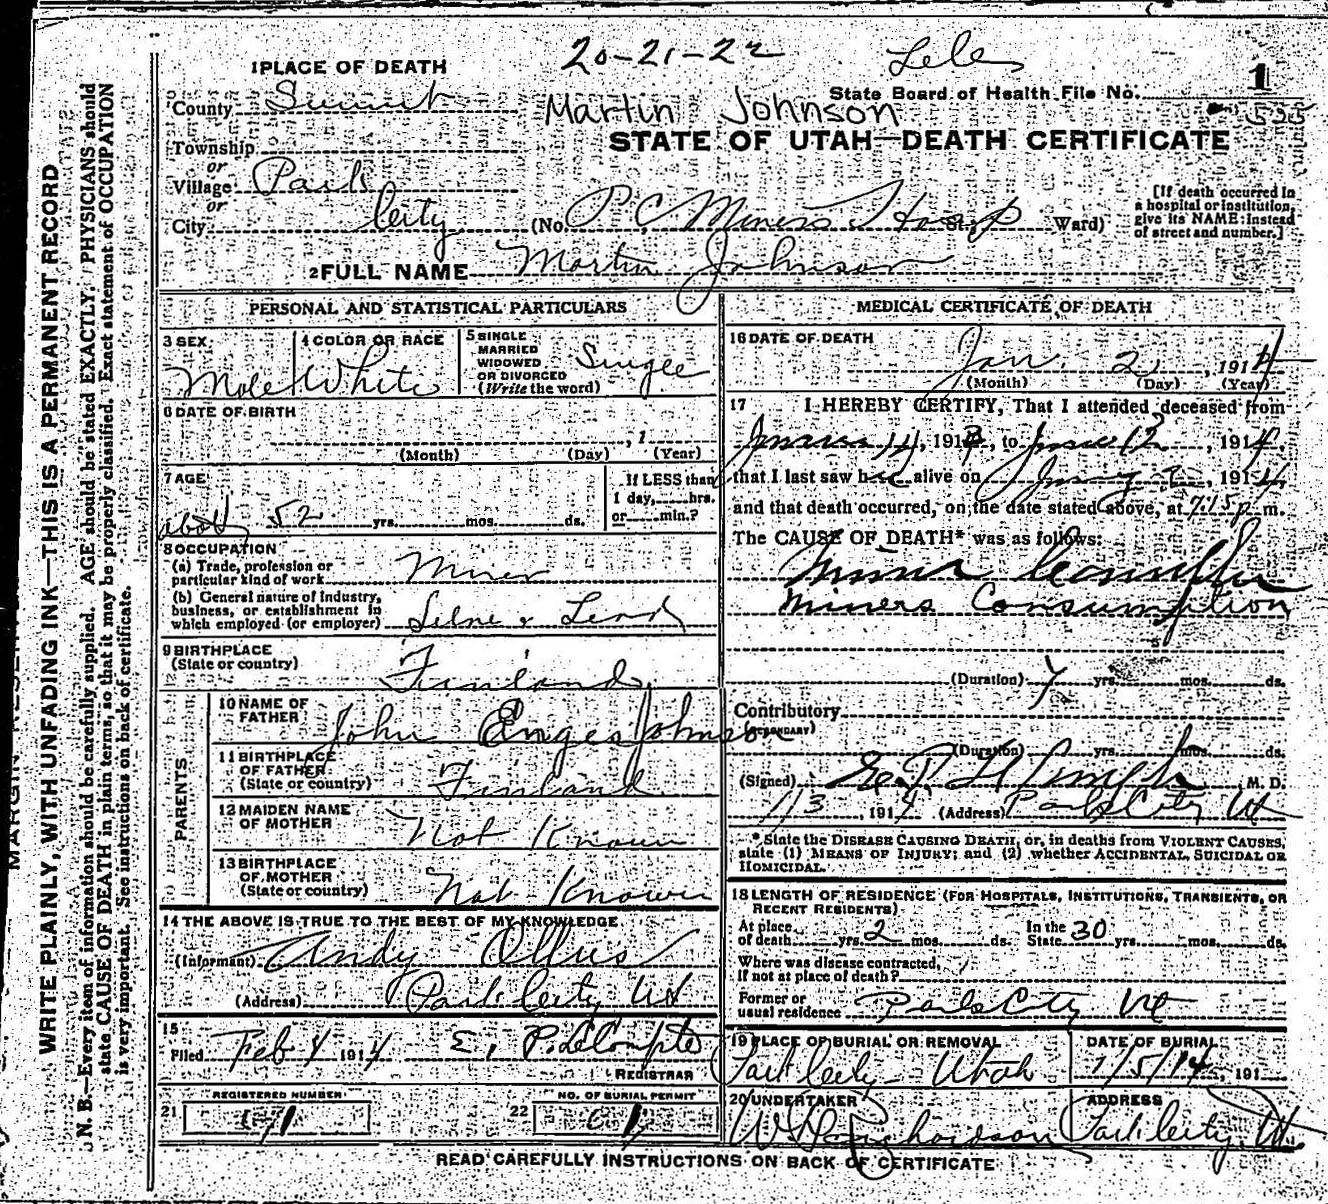 20-21-22
1 PLACE OF DEATH
State Board of Health File No. 1
County Summit
Martin Johnson
535
STATE OF UTAH—DEATH CERTIFICATE
Township
or
Village Park
or
City City
(No. P C Miners Hosp St., Ward)
[If death occurred in
a hospital or institution,
give its NAME instead
of street and number.]
2 FULL NAME Martin Johnson
PERSONAL AND STATISTICAL PARTICULARS
3 SEX
Male
4 COLOR OR RACE
White
5 SINGLE
MARRIED
WIDOWED
OR DIVORCED
(Write the word)
Single
6 DATE OF BIRTH
, 1
(Month) (Day) (Year)
7 AGE
about 52 yrs. mos. ds.
If LESS than
1 day, hrs.
or min.?
8 OCCUPATION
(a) Trade, profession or
particular kind of work Miner
(b) General nature of industry,
business, or establishment in
which employed (or employer) Lead
9 BIRTHPLACE
(State or country)
Finland
PARENTS
10 NAME OF
FATHER John Johnson
11 BIRTHPLACE
OF FATHER
(State or country) Finland
12 MAIDEN NAME
OF MOTHER Not Known
13 BIRTHPLACE
OF MOTHER
(State or country) Not Known
14 THE ABOVE IS TRUE TO THE BEST OF MY KNOWLEDGE
(Informant) Andy
(Address) Park City Ut
15
Filed Feb 4 1914 E. P. LeCompte
REGISTRAR
REGISTERED NUMBER
21
NO. OF BURIAL PERMIT
22
MEDICAL CERTIFICATE OF DEATH
16 DATE OF DEATH
Jan. 2, 1914
(Month) (Day) (Year)
17 I HEREBY CERTIFY, That I attended deceased from
14, 191 , to , 1914
that I last saw h alive on , 1914
and that death occurred, on the date stated above, at 7:15 p m.
The CAUSE OF DEATH* was as follows:
Miners Consumption
(Duration) 7 yrs. mos. ds.
Contributory
(SECONDARY)
(Duration) yrs. mos. ds.
(Signed) M. D.
1/3, 1914 (Address) Park City Ut
* State the DISEASE CAUSING DEATH, or, in deaths from VIOLENT CAUSES,
state (1) MEANS OF INJURY; and (2) whether ACCIDENTAL, SUICIDAL OR
HOMICIDAL.
18 LENGTH OF RESIDENCE (FOR HOSPITALS, INSTITUTIONS, TRANSIENTS, OR
RECENT RESIDENTS)
At place
of death yrs. 2 mos. ds.
In the
State 30 yrs. mos. ds.
Where was disease contracted,
if not at place of death?
Former or
usual residence Park City Ut
19 PLACE OF BURIAL OR REMOVAL
Park City Utah
DATE OF BURIAL
1/5/14, 191
20 UNDERTAKER
Richardson
ADDRESS
Park City, Ut.
READ CAREFULLY INSTRUCTIONS ON BACK OF CERTIFICATE
WRITE PLAINLY, WITH UNFADING INK—THIS IS A PERMANENT RECORD
N. B.—Every item of information should be carefully supplied. AGE should be stated EXACTLY. PHYSICIANS should
state CAUSE OF DEATH in plain terms, so that it may be properly classified. Exact statement of OCCUPATION
is very important. See instructions on back of certificate.